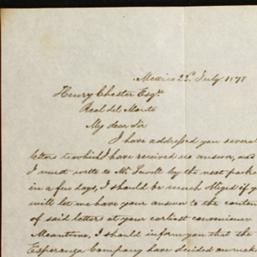 Mexico 22d July 1878
Henry Chester Esqr
Real del Monte
My dear Sir
I have addressed you several
letters to which I have received no answer, and
I must write to Mr by the next packet
in a few days, I should be much obliged if you
will let me have your answer to the content
of said letters at your earliest convenience
Meantime, I should inform you that the
Esperanza Company have decided on